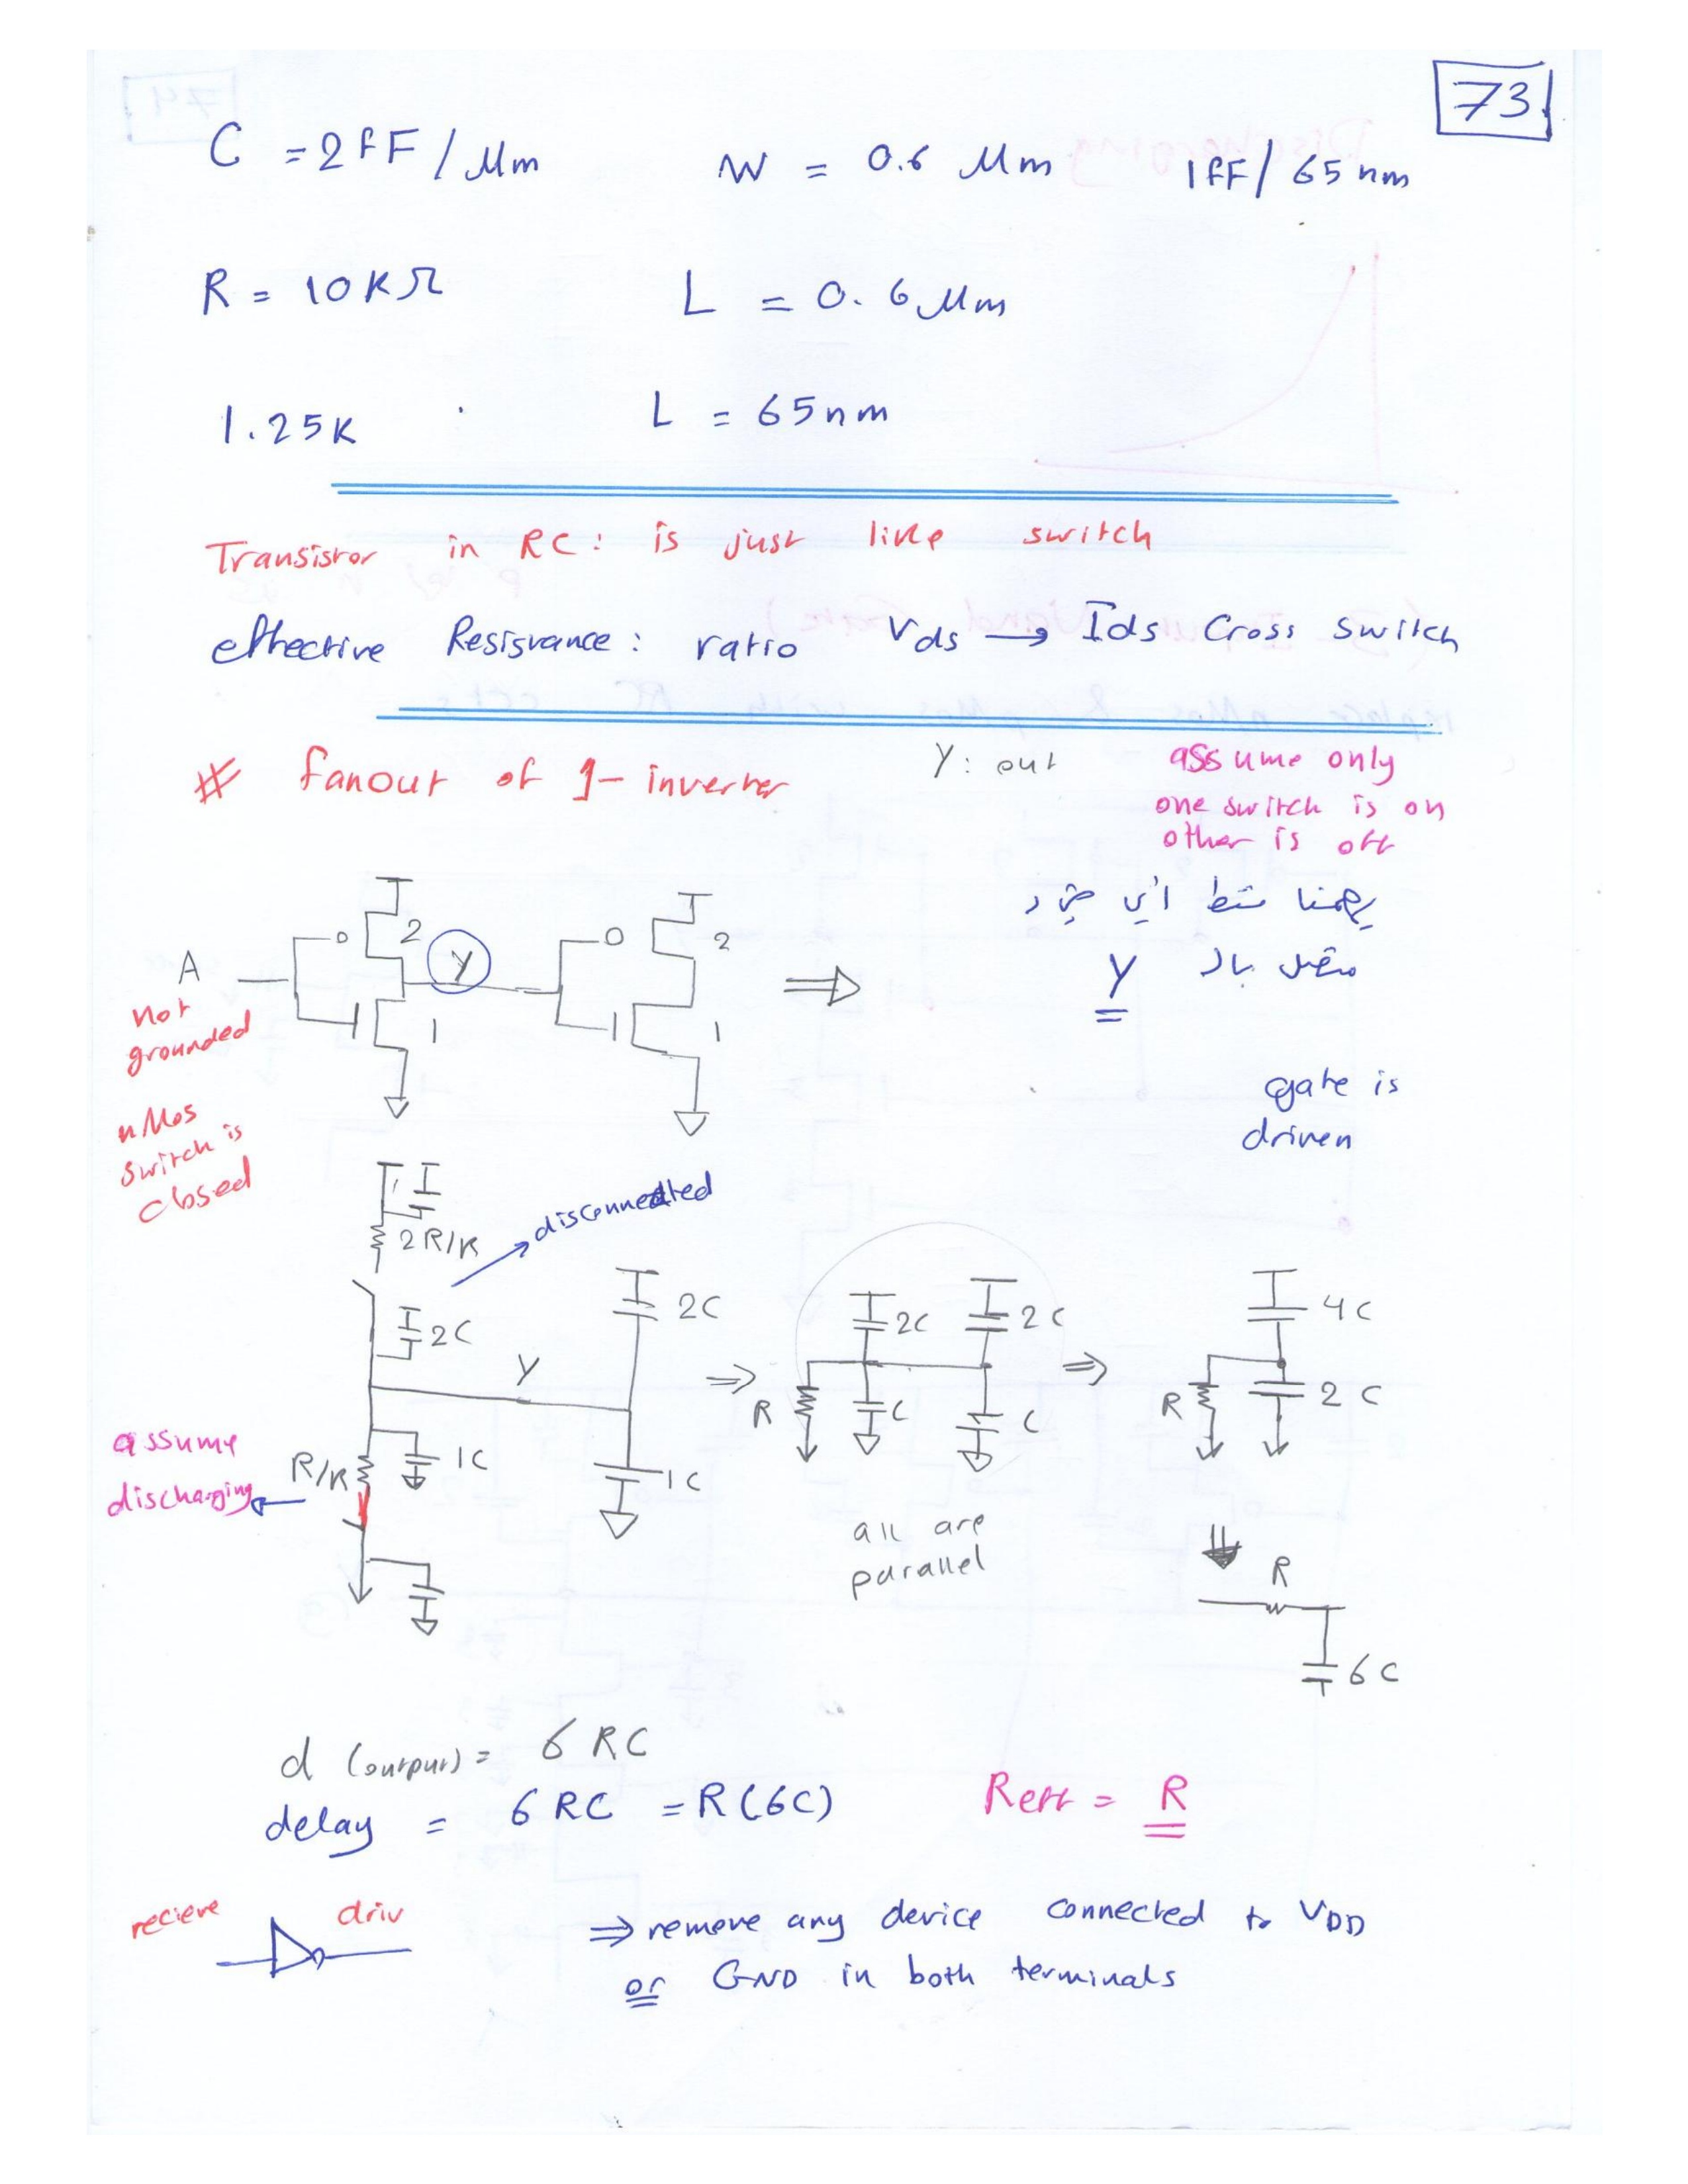 73
C = 2 fF / Mm W = 0.6 Mm 1 fF / 65 nm
R = 10 KΩ L = 0.6 Mm
1.25K L = 65nm
Transistor in RC: is just like switch
effective Resistance: ratio Vds → Ids Cross switch
# fanout of 1- inverter Y: out assume only
one switch is on
other is off
يهمنا فقط أي
Y
2
Y
2
A
1
1
not
grounded
nMos
switch is
closed
gate is
driven
disconnected
2R/K
2C
2C
Y
R/K
1C
1C
assume
discharging
⇒
2C
2C
R
C
C
all are
parallel
⇒
4C
R
2C
R
6C
d (output) = 6 RC
delay = 6 RC = R(6C) Reff = R
recieve driv
⇒ remove any device connected to VDD
or GND in both terminals